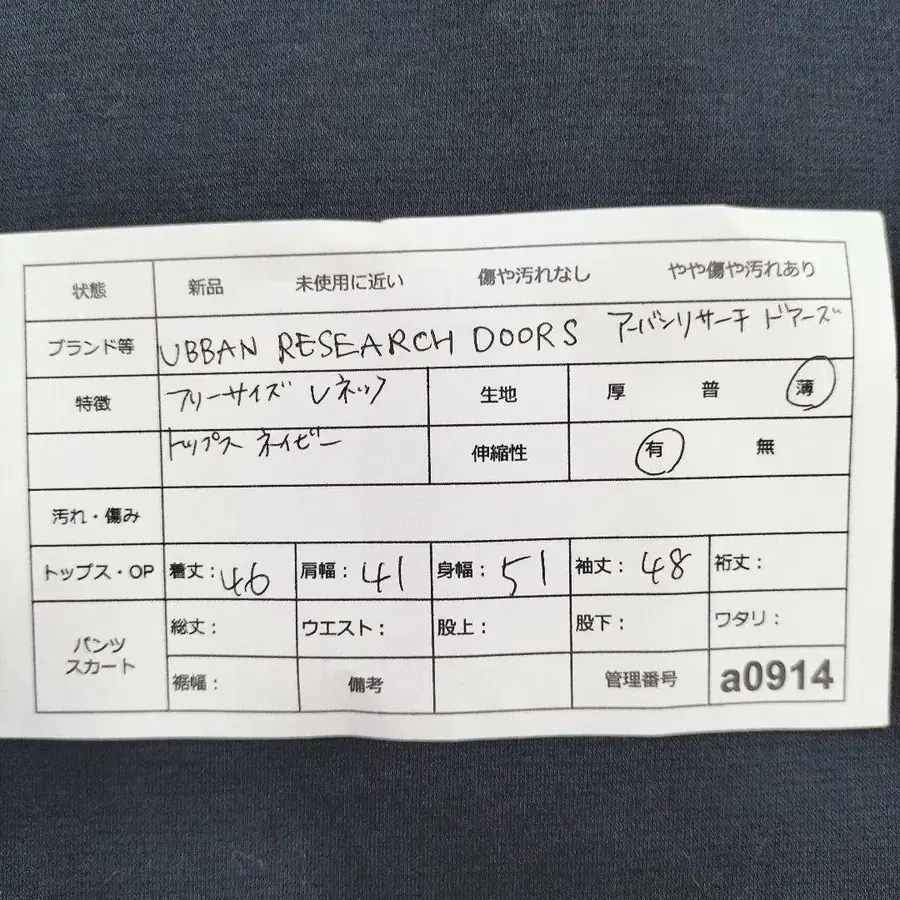 状態 新品 未使用に近い 傷や汚れなし やや傷や汚れあり
ブランド等 UBBAN RESEARCH DOORS アーバンリサーチ ドアーズ
特徴 フリーサイズ Vネック 生地 厚 普 薄
トップス ネイビー 伸縮性 有 無
汚れ・傷み
トップス・OP 着丈：46 肩幅：41 身幅：51 袖丈：48 裄丈：
パンツ スカート 総丈： ウエスト： 股上： 股下： ワタリ：
裾幅： 備考 管理番号 a0914